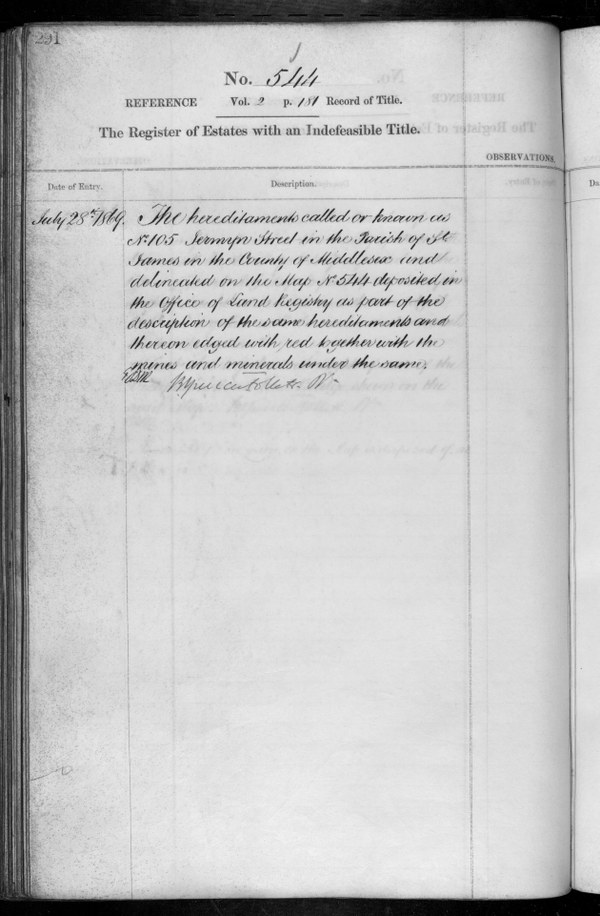 291
No. 544
REFERENCE Vol. 2 p. 181 Record of Title.
The Register of Estates with an Indefeasible Title.
OBSERVATIONS.
Date of Entry.
Description.
July 28th 1869.
The hereditaments called or known as
No. 105 Jermyn Street in the Parish of St
James in the County of Middlesex and
delineated on the Map No. 544 deposited in
the Office of Land Registry as part of the
description of the same hereditaments and
thereon edged with red together with the
mines and minerals under the same.